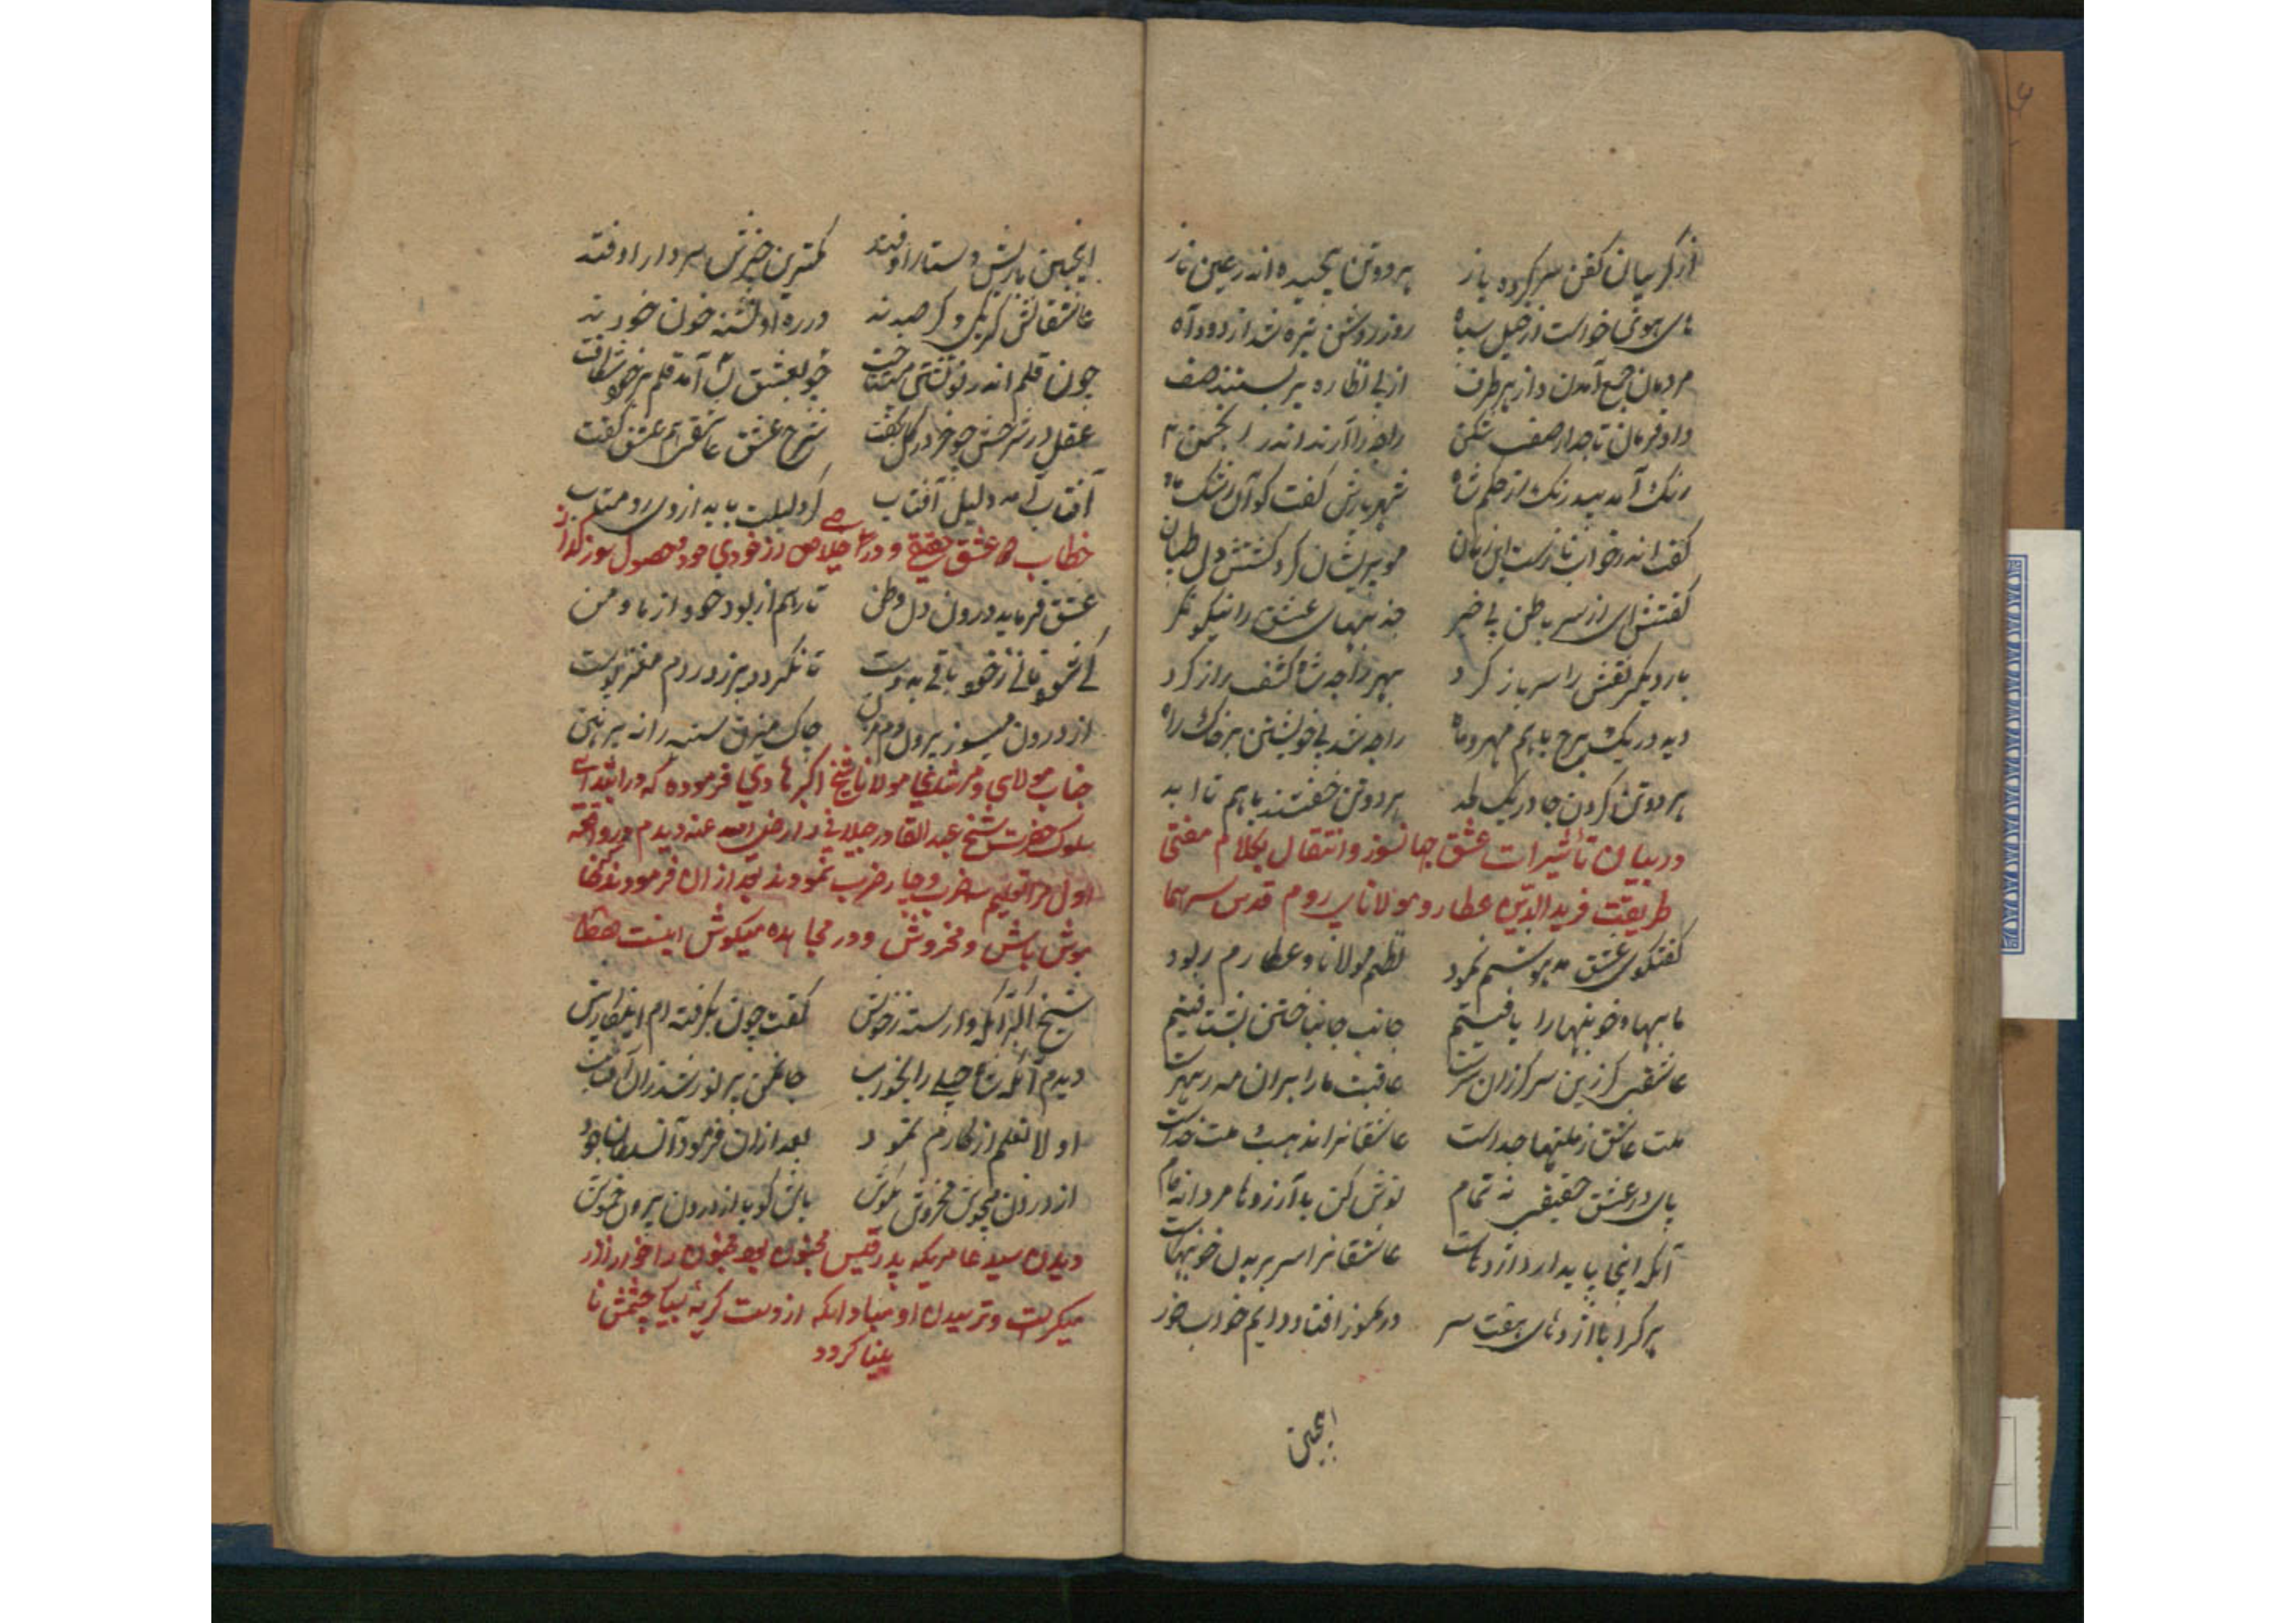 از گریبان کفن سر کرده باز هر دو تن پیچیده اندر عین ناز
های هوئی خواست از خیل سپاه روز روشن تیره شد از دود آه
مردمان جمع آمدند از هر طرف از پی نظاره بر بستند صف
داد فرمان تاجدار صف شکن راجه را آرند اندر انجمن
رنک آمد بیدرنک از حکم شاه شهریارش کفت کو آن رشک ماه
کفت اندر خواب ناز است این زمان مو پریشان کرد کشتش دل طپان
کفتش ای از سر باطن بی خبر جذبهای عشق را نیکو نکر
بار دیکر نعش را سر باز کرد بهر راجه شاه کشف راز کرد
دید در یک برج باهم مهر و ماه راجه شد بی خویشتن بر خاک راه
هر دو تن کردن جا در یک لحد هر دو تن خفتند باهم تا ابد
در بیان تأثیرات عشق جهانسوز و انتقال بکلام مفتی
طریقت فرید الدین عطار و مولانای روم قدس سرهما
کفتکوی عشق مدهوشم نمود نظم مولانا و عطارم ربود
ما بهاو خونبها را یافتیم جانب جان باختن بشتافتیم
عاشقی کر زین سر کر زان سرست عاقبت ما را بران شه رهبرست
ملت عاشق ز ملتها جداست عاشقانرا مذهب و ملت خداست
پای در عشق حقیقی نه تمام نوش کن با اژدها مردانه جام
آنکه اینجا پا بدارد اژدهاست عاشقانرا سر بریدن خونبهاست
هر کرا با اژدهای هفت سر در تموز افتاد دایم خواب خور
اینچنین
اینچنین بارش و ستار اوفتد کمترین چیزش سر دار اوفتد
عاشقانش کر یکی و کر صدند در ره او تشنه خون خودند
چون قلم اندر نوشتن می شتافت چو بعشق آمد قلم بر خود شکافت
عقل در شرحش چو خر در کل بخفت شرح عشق عاشقی هم عشق کفت
آفتاب آمد دلیل آفتاب کر دلیلت باید از وی رو متاب
خطاب عشق حقیقی و در خلاص از خودی خود و حصول سوز کداز
عشق فرماید درون دل وطن تا رهم از بود خود و از ما و من
کی شود فانی ز خود باقی بدوست تا نکردد
از درون میسوز بیرون دم مزن چاک میزن سینه را نه پیرهن
جناب مولای و مرشدی مولانا شیخ اکبر هادی فرموده که در ابتدای
سلوک حضرت شیخ عبد القادر جیلانی را رضی الله عنه دیدم در واقعه
اول مرا تعلیم سه ضرب و چار ضرب نمودند بعد از ان فرمودند که
بوش باش و مخروش و در مجاهده میکوش اینست
شیخ اکبر آنکه وارسته ز خویش کفت چون بکرفته ام این کار پیش
دیدم آنکه شاه جیلی را بخواب جان من پر نور شد زان آفتاب
اولا تعلیم اذکارم نمود بعد از ان فرمود آن سلطان جود
از درون میجوش مخروش بکوش باش کویا از درون بیرون خموش
دیدن سید عامریکه پدر قیس مجنون بود مجنون را خوار زار
میکریست و ترسیدن او مبادا که از دست کریه بسیار چشمش نا
بینا کردد